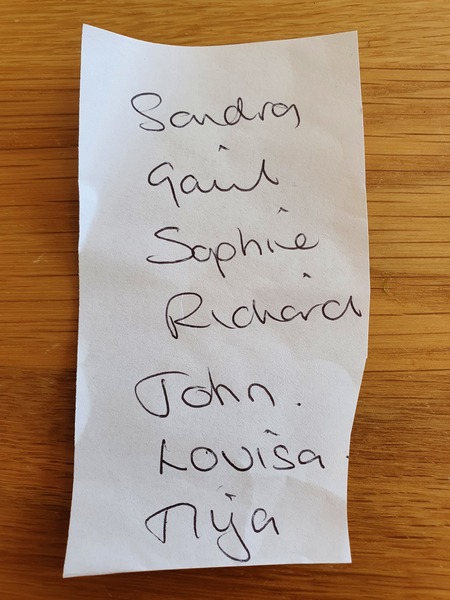 Sandra
Gail
Sophie
Richard
John.
Louisa.